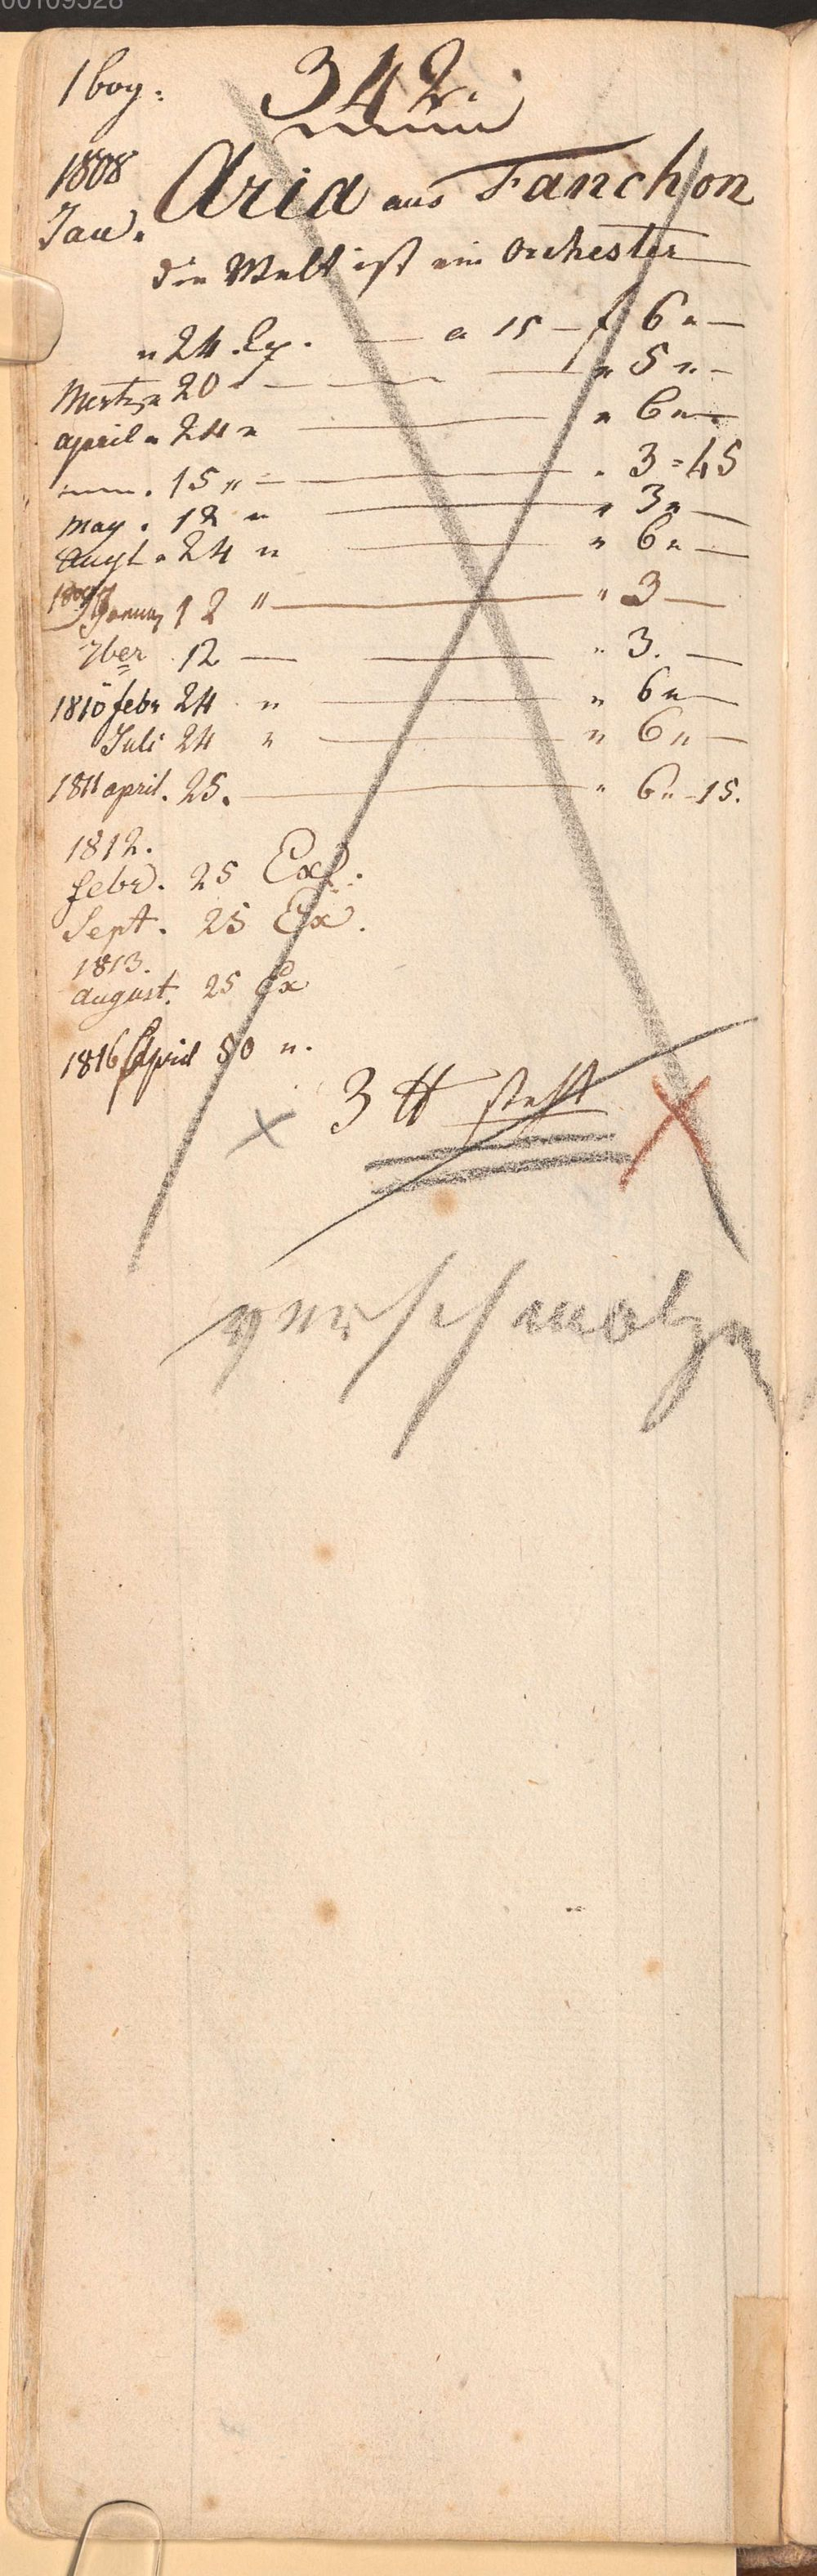 1 bog.
342.
1808
Jan.
Aria aus Fanchon
die Welt ist ein Orchester
" 24 Ex. — a 15 — f 6 " —
Mertz " 20 " — — " 5 " —
april " 24 " — " 6 " —
" 15 " — " 3 = 45
may " 12 " — " 3 " —
Augt " 24 " — " 6 " —
1809 Januar 12 " — " 3 —
7ber 12 — — " 3. —
1810 febr 24 " — " 6 " —
Juli 24 " — " 6 " —
1811 april. 25. — " 6 " 15.
1812.
febr. 25 Exp.
Sept. 25 Ex.
1813.
august. 25 Ex
1816 April 50 "
3 ℔ steht
verschmolzen